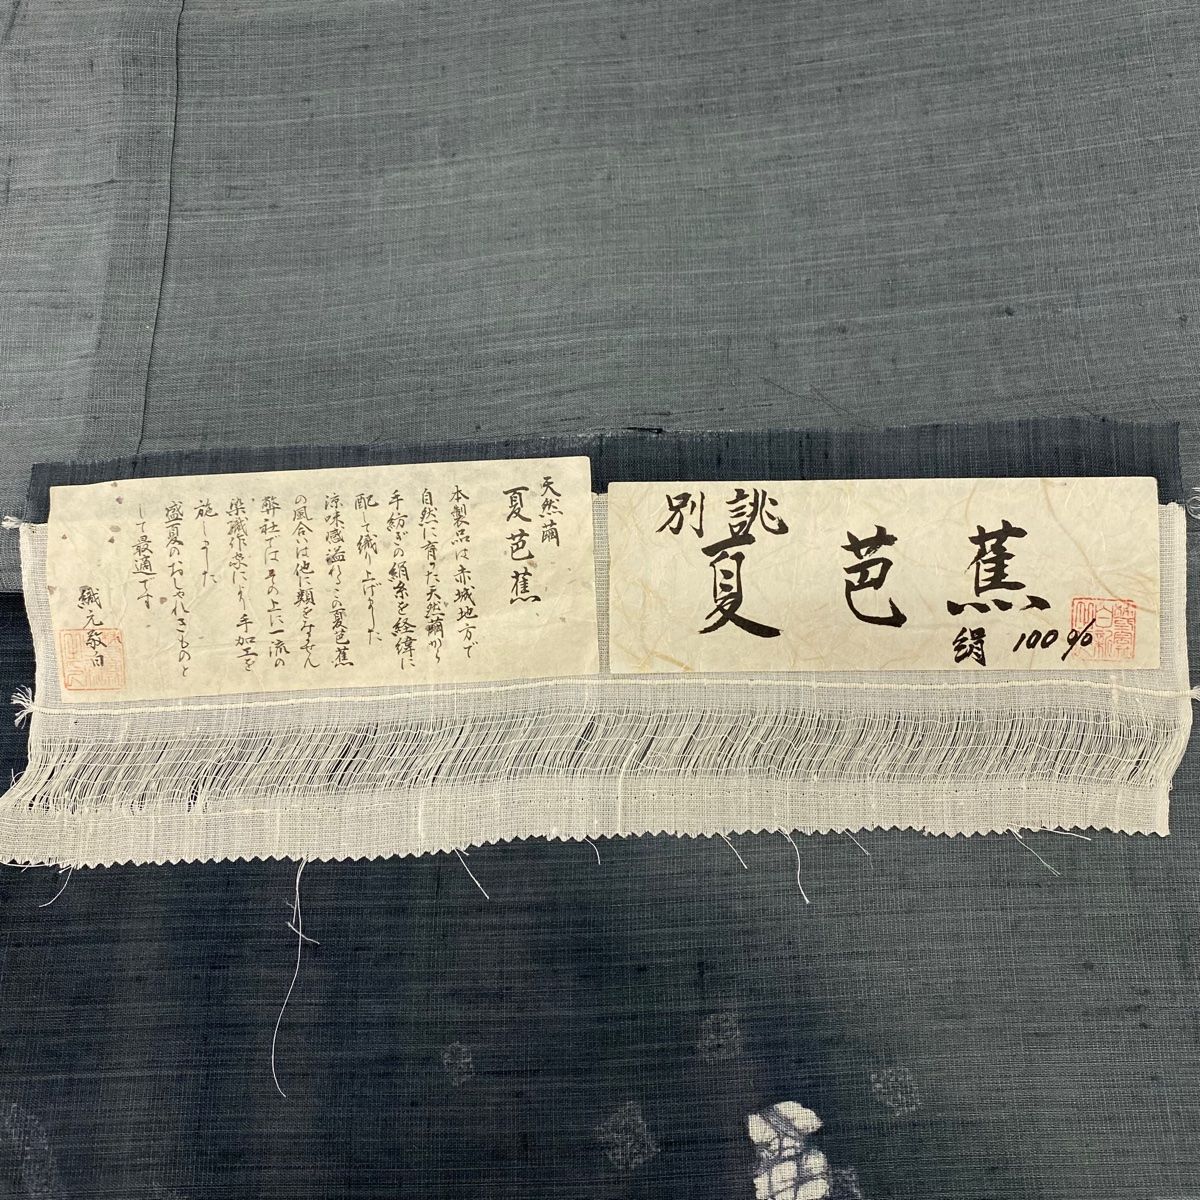 天然繭
夏芭蕉
本製品は赤城地方で
自然に育った天然繭から
手紡ぎの絹糸を経緯に
配して織り上げました
涼味感溢れるこの夏芭蕉
の風合いは他に類をみません
弊社では その上に一流の
染織作家により手加工を
施しました
盛夏のおしゃれきものと
して最適です
織元敬白
別誂
夏芭蕉
絹 100%